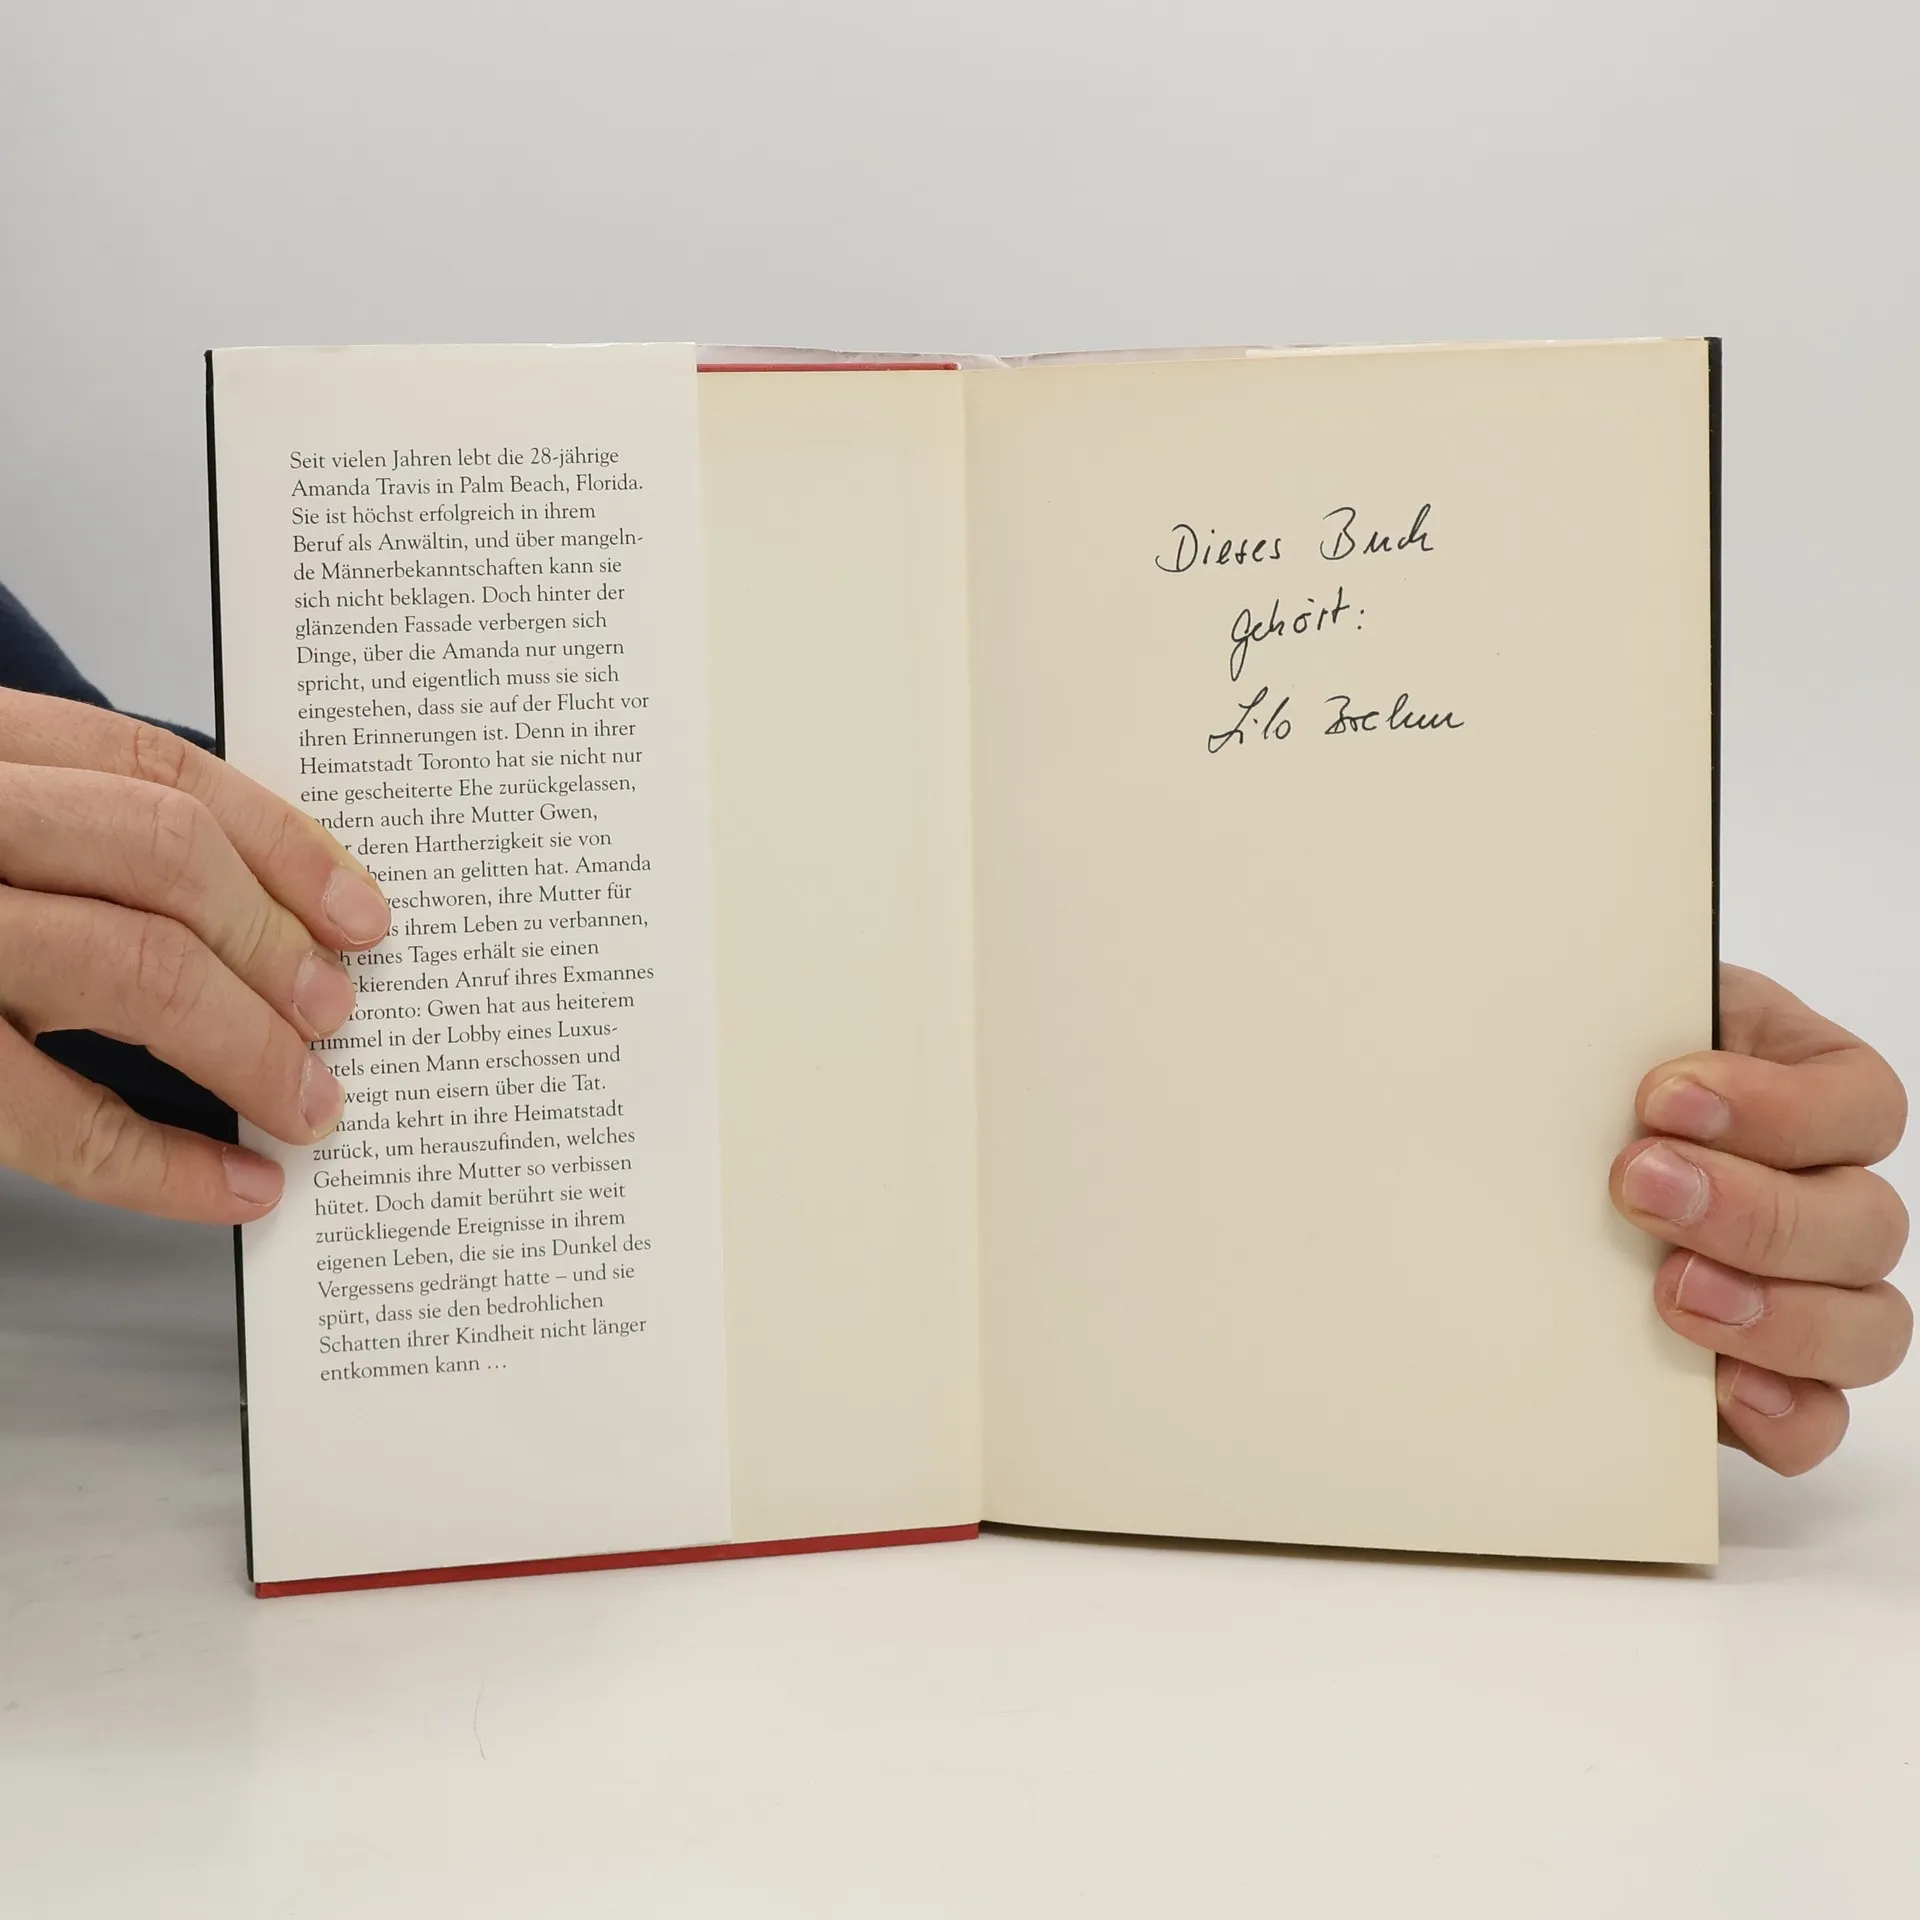 Seit vielen Jahren lebt die 28-jährige
Amanda Travis in Palm Beach, Florida.
Sie ist höchst erfolgreich in ihrem
Beruf als Anwältin, und über mangeln-
de Männerbekanntschaften kann sie
sich nicht beklagen. Doch hinter der
glänzenden Fassade verbergen sich
Dinge, über die Amanda nur ungern
spricht, und eigentlich muss sie sich
eingestehen, dass sie auf der Flucht vor
ihren Erinnerungen ist. Denn in ihrer
Heimatstadt Toronto hat sie nicht nur
eine gescheiterte Ehe zurückgelassen,
ondern auch ihre Mutter Gwen,
deren Hartherzigkeit sie von
beinen an gelitten hat. Amanda
geschworen, ihre Mutter für
ihrem Leben zu verbannen,
eines Tages erhält sie einen
ckierenden Anruf ihres Exmannes
Toronto: Gwen hat aus heiterem
Himmel in der Lobby eines Luxus-
otels einen Mann erschossen und
weigt nun eisern über die Tat.
manda kehrt in ihre Heimatstadt
zurück, um herauszufinden, welches
Geheimnis ihre Mutter so verbissen
hütet. Doch damit berührt sie weit
zurückliegende Ereignisse in ihrem
eigenen Leben, die sie ins Dunkel des
Vergessens gedrängt hatte – und sie
spürt, dass sie den bedrohlichen
Schatten ihrer Kindheit nicht länger
entkommen kann …
Dieses Buch
gehört:
Lilo Brehm